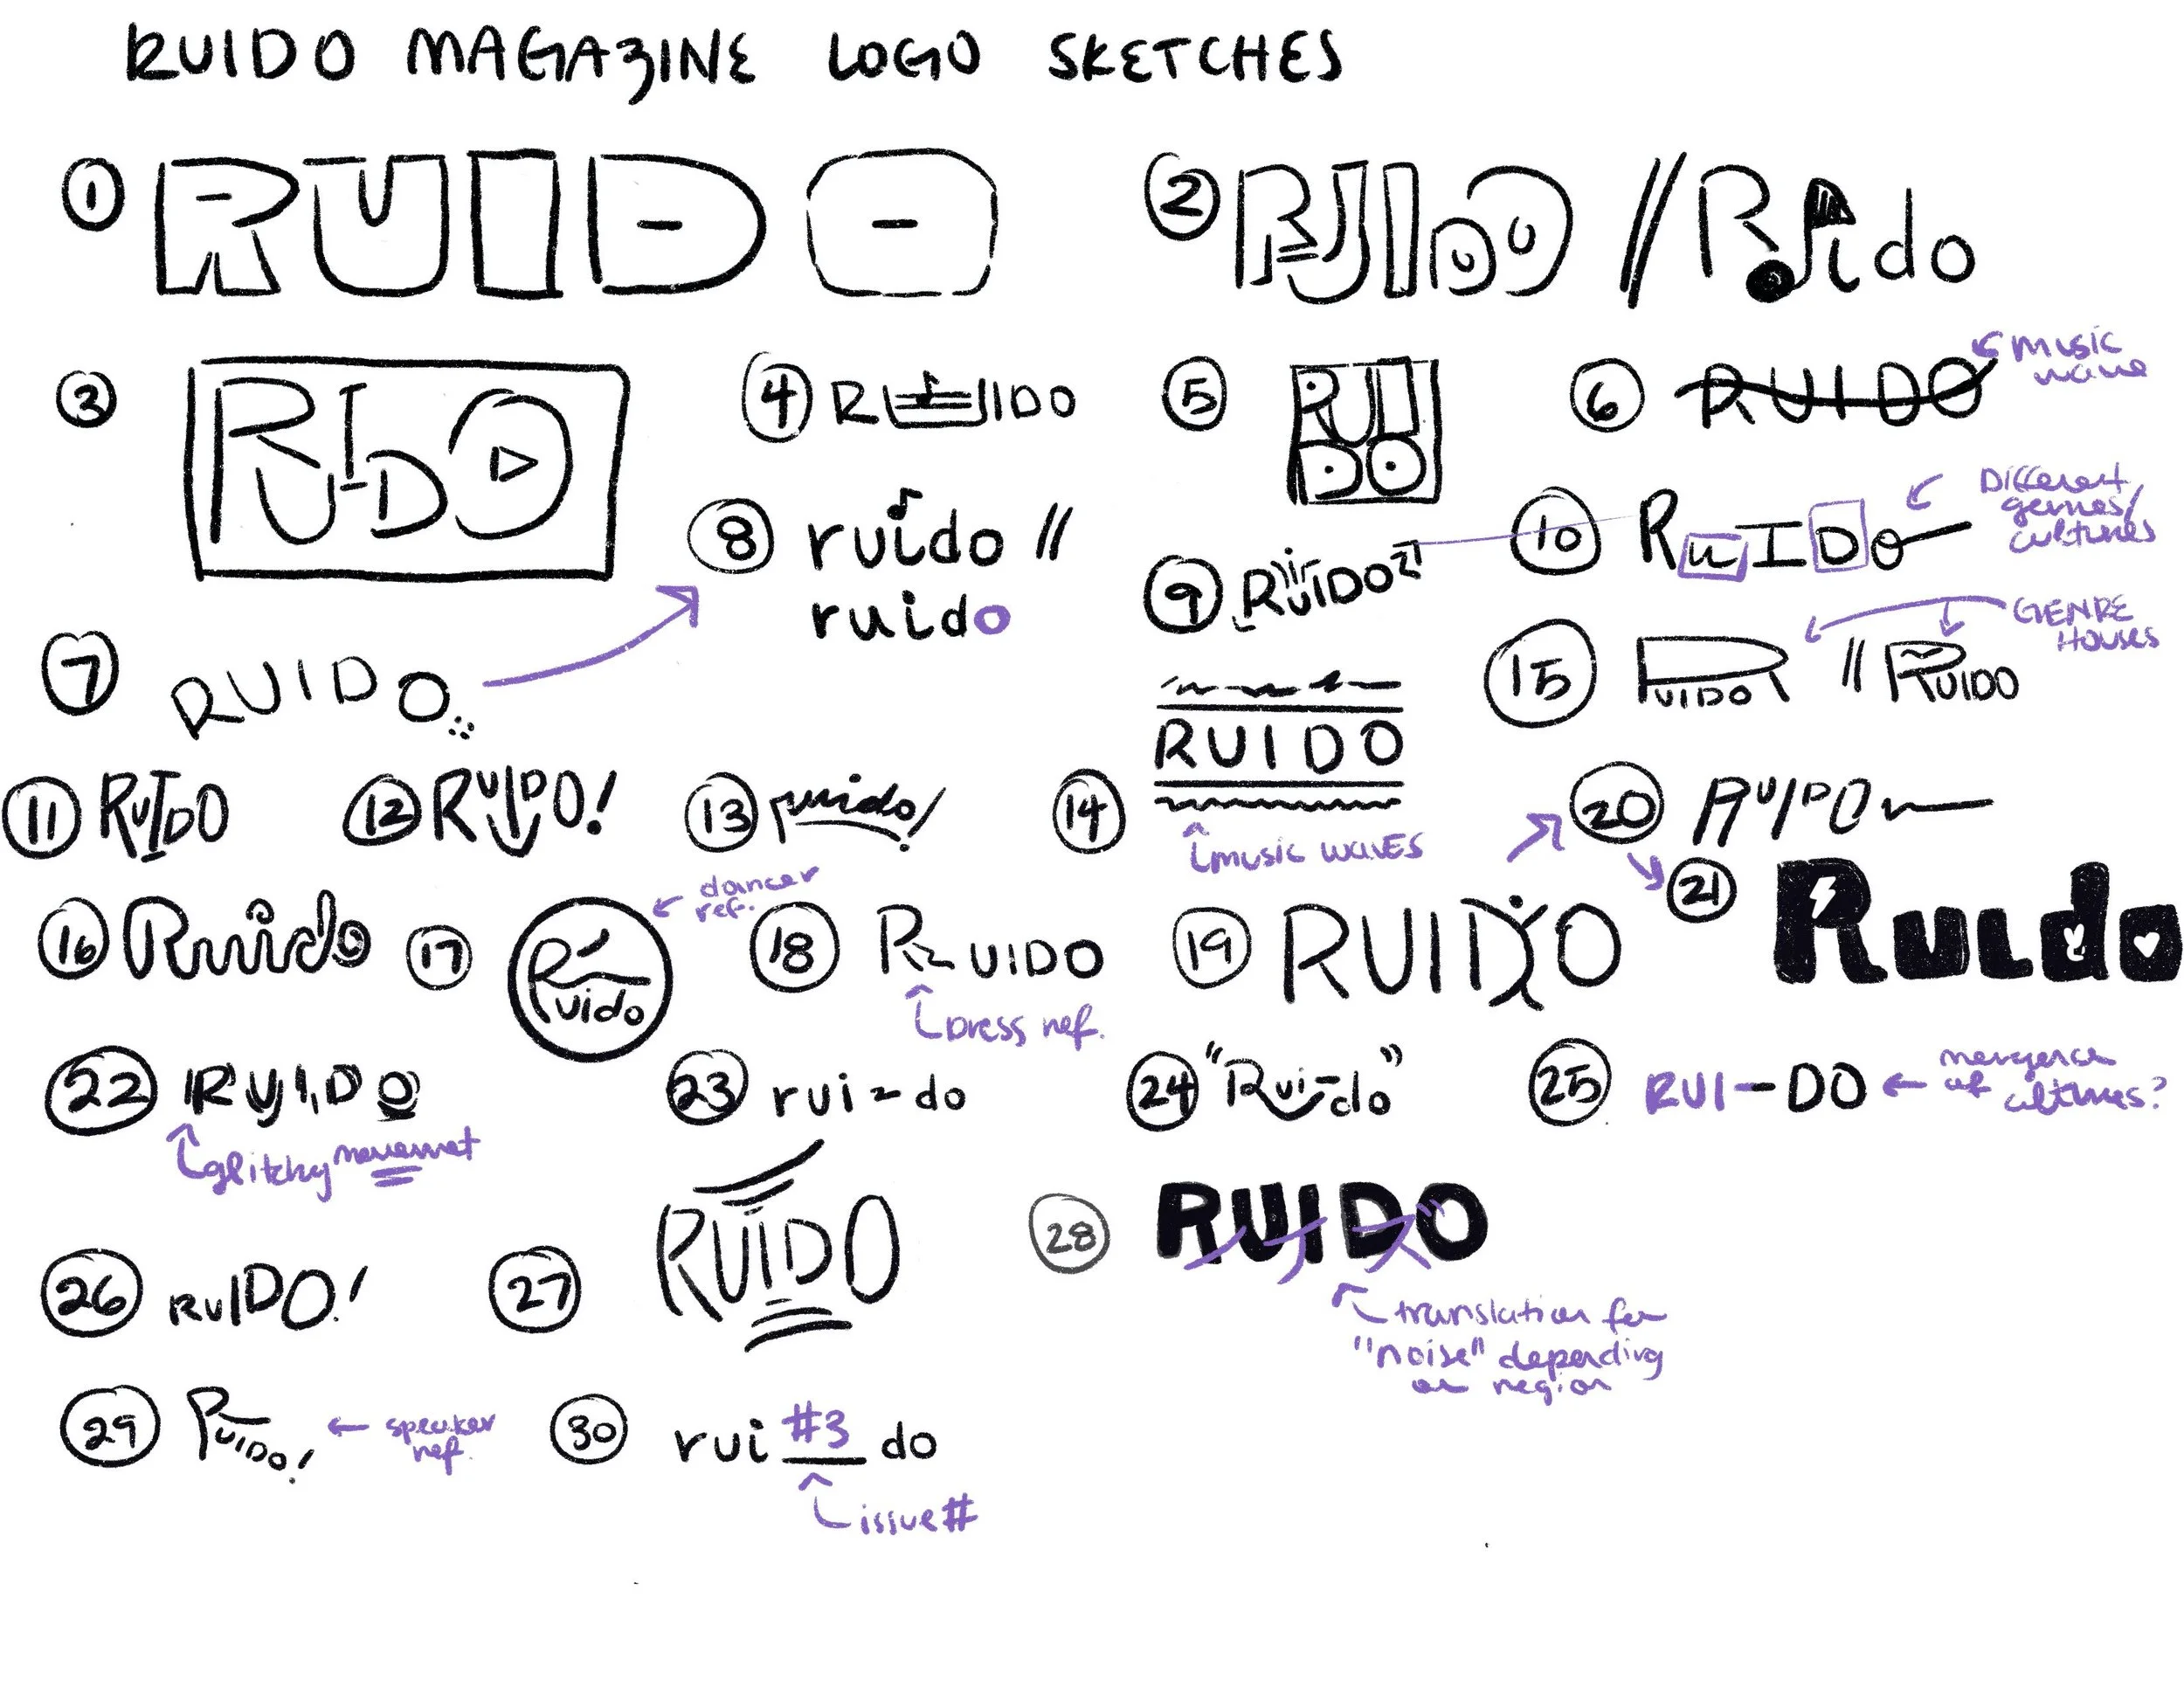 RUIDO MAGAZINE LOGO SKETCHES
1 RUIDO
2 RUIDO // Ruido
3 RUIDO
4 RUIDO
5 RUI
DO
6 RUIDO
music
wave
7 RUIDO
8 ruido //
ruido
9 RUIDO
10 RUIDO
Different
genres/
cultures
15 RUIDO // RUIDO
GENRE
HOUSES
11 RUIDO
12 RUIDO!
13 ruido!
14 RUIDO
music waves
20 RUIDO
16 Ruido
17 Ruido
dancer
ref.
18 RUIDO
Dress ref.
19 RUIDO
21 Ruido
22 RUIDO
glitchy movement
23 rui-do
24 "Rui-do"
25 RUI-DO
mergence
of cultures?
26 RUIDO!
27 RUIDO
28 RUIDO
translation for
"noise" depending
on region
29 RUIDO!
speaker
ref.
30 rui #3 do
issue #